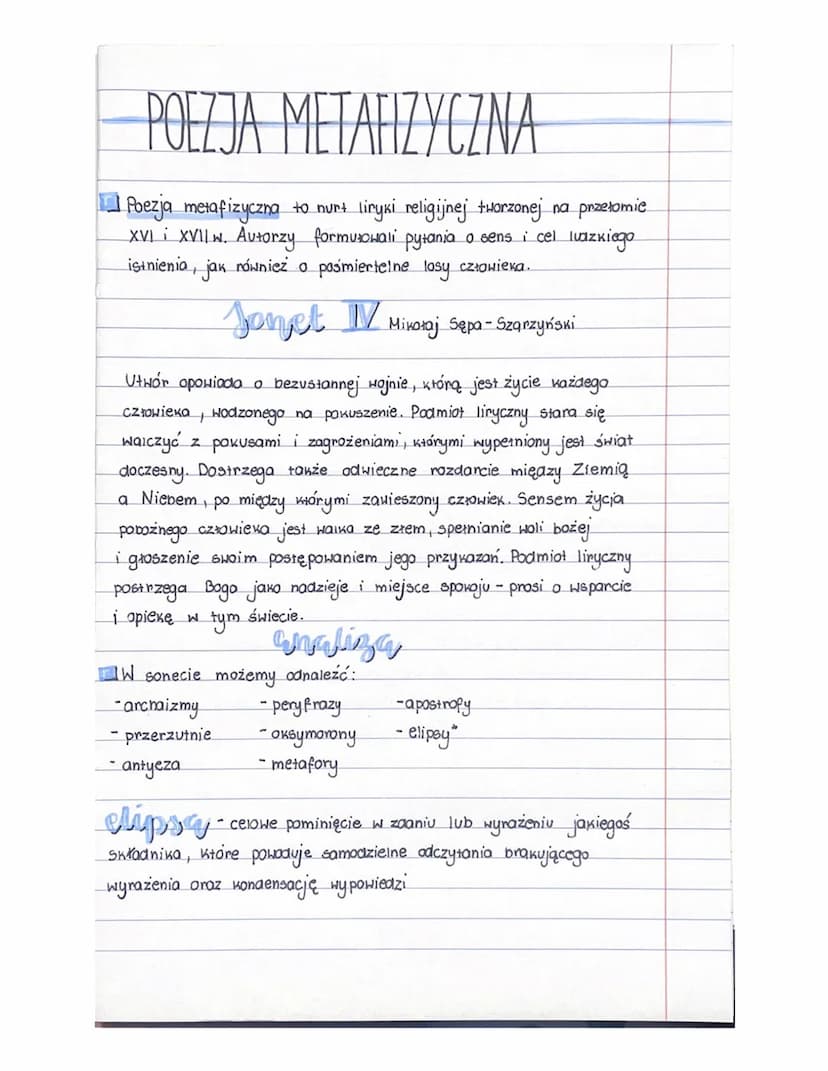 POEZJA METAFIZYCZNA
Poezja metafizyczna to nurt liryki religijnej tworzonej na przełomie
XVI i XVII w. Autorzy formułowali pytania o sens i cel ludzkiego
istnienia, jak również o pośmiertelne losy człowieka.
Sonet IV Mikołaj Sępa-Szarzyński
Utwór opowiada o bezustannej wojnie, którą jest życie każdego
człowieka, wodzonego na pokuszenie. Podmiot liryczny stara się
walczyć z pokusami i zagrożeniami, którymi wypełniony jest świat
doczesny. Dostrzega także odwieczne rozdarcie między Ziemią
a Niebem, po między którymi zawieszony człowiek. Sensem życia
pobożnego człowieka jest walka ze złem, spełnianie woli bożej
i głoszenie swoim postępowaniem jego przykazań. Podmiot liryczny
postrzega Boga jako nadzieje i miejsce spokoju - prosi o wsparcie
i opiekę w tym świecie.
analiza
W sonecie możemy odnaleźć:
- archaizmy - peryfrazy - apostrofy
- przerzutnie - oksymorony - elipsy*
- antyeza - metafory
elipsa - celowe pominięcie w zdaniu lub wyrażeniu jakiegoś
składnika, które powoduje samodzielne odczytania brakującego
wyrażenia oraz kondensację wypowiedzi